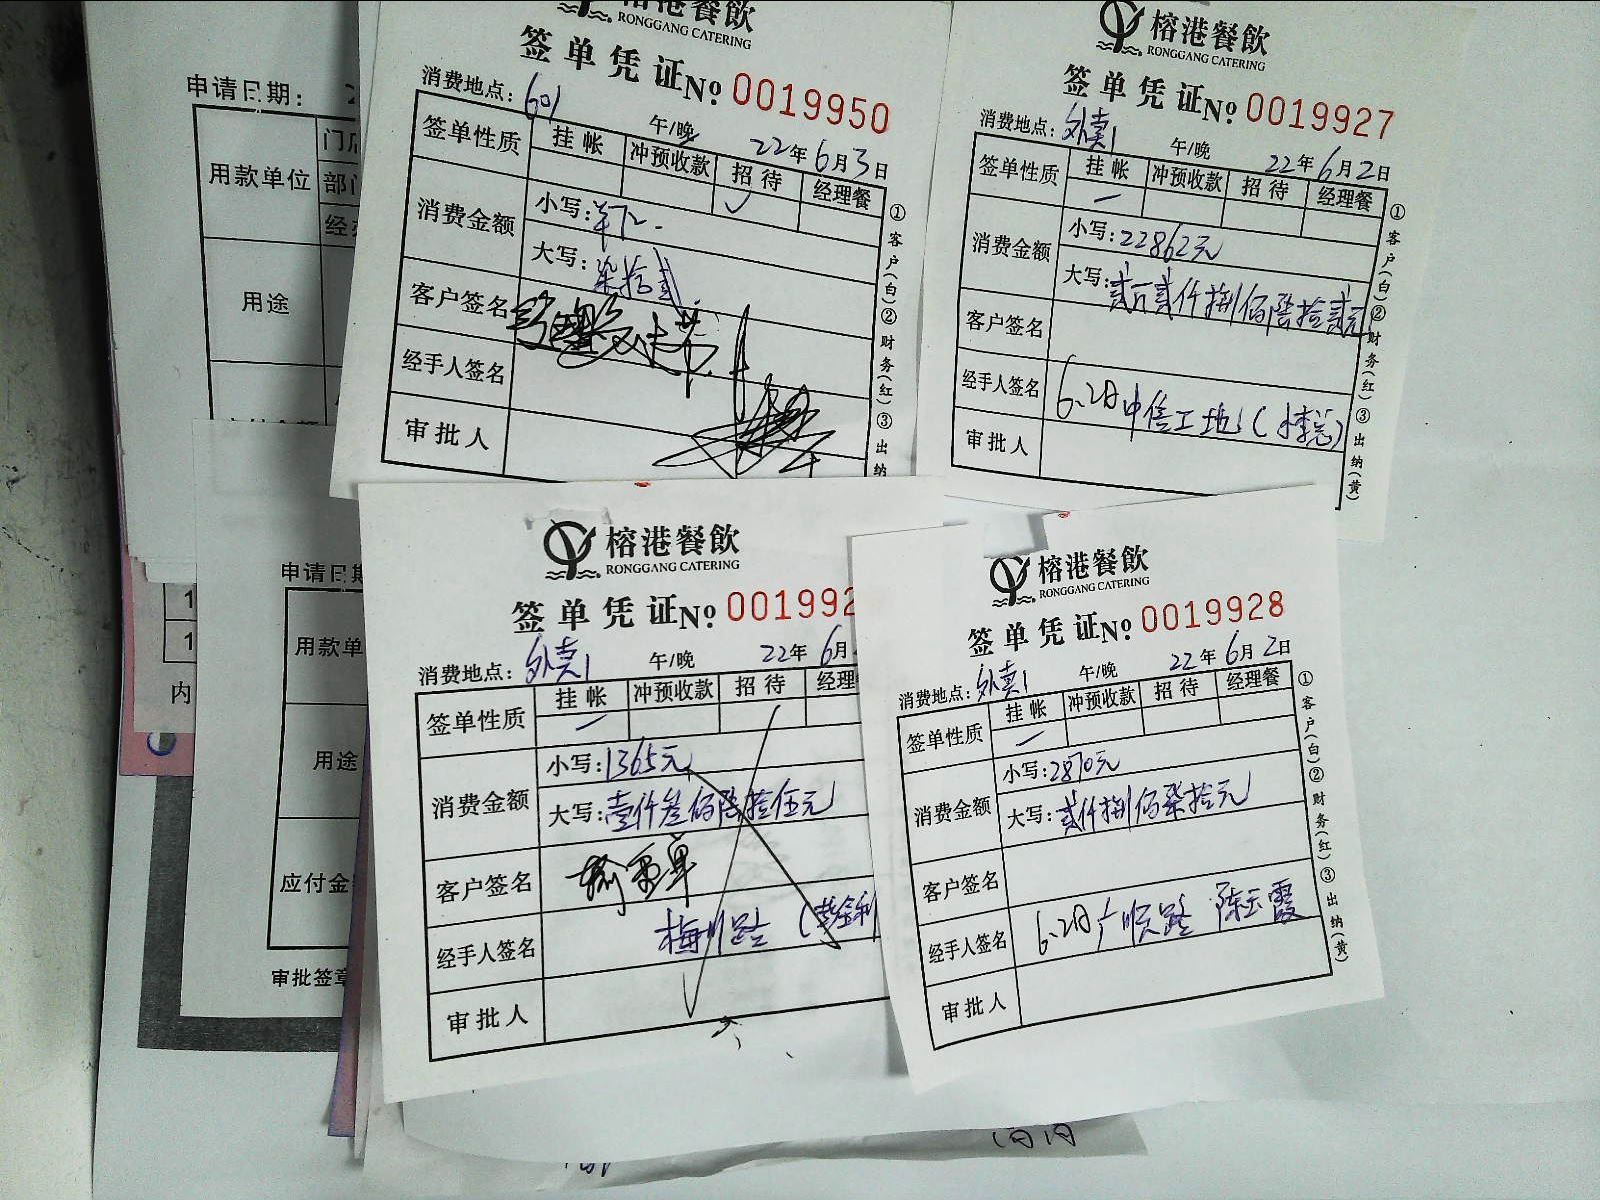 申请日期：
门店
用款单位
部门
经办
用途
榕港餐飲
RONGGANG CATERING
签单凭证№ 0019950
消费地点：601 午/晚 22年6月3日
签单性质 挂帐 冲预收款 招待 经理餐
消费金额 小写：¥72.
大写：柒拾贰
客户签名
经手人签名
审批人
①客户(白)②财务(红)③出纳
榕港餐飲
RONGGANG CATERING
签单凭证№ 0019927
消费地点：外卖1 午/晚 22年6月2日
签单性质 挂帐 冲预收款 招待 经理餐
消费金额 小写：22862元
大写：贰万贰仟捌佰陆拾贰元
客户签名
经手人签名 6.2日中信工地(李总)
审批人
①客户(白)②财务(红)③出纳(黄)
申请日期
用款单
用途
应付金
审批签章
1
1
内
榕港餐飲
RONGGANG CATERING
签单凭证№ 001992
消费地点：外卖1 午/晚 22年6月
签单性质 挂帐 冲预收款 招待 经理
消费金额 小写：1365元
大写：壹仟叁佰陆拾伍元
客户签名
经手人签名 梅川路
审批人
榕港餐飲
RONGGANG CATERING
签单凭证№ 0019928
消费地点：外卖1 午/晚 22年6月2日
签单性质 挂帐 冲预收款 招待 经理餐
消费金额 小写：2870元
大写：贰仟捌佰柒拾元
客户签名
经手人签名 6.2日广顺路 陈玉霞
审批人
①客户(白)②财务(红)③出纳(黄)